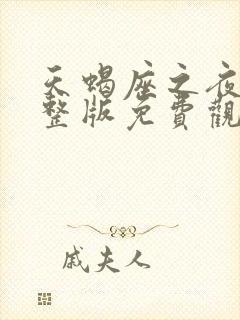 天蝎座之夜
整版免費觀
戚夫人